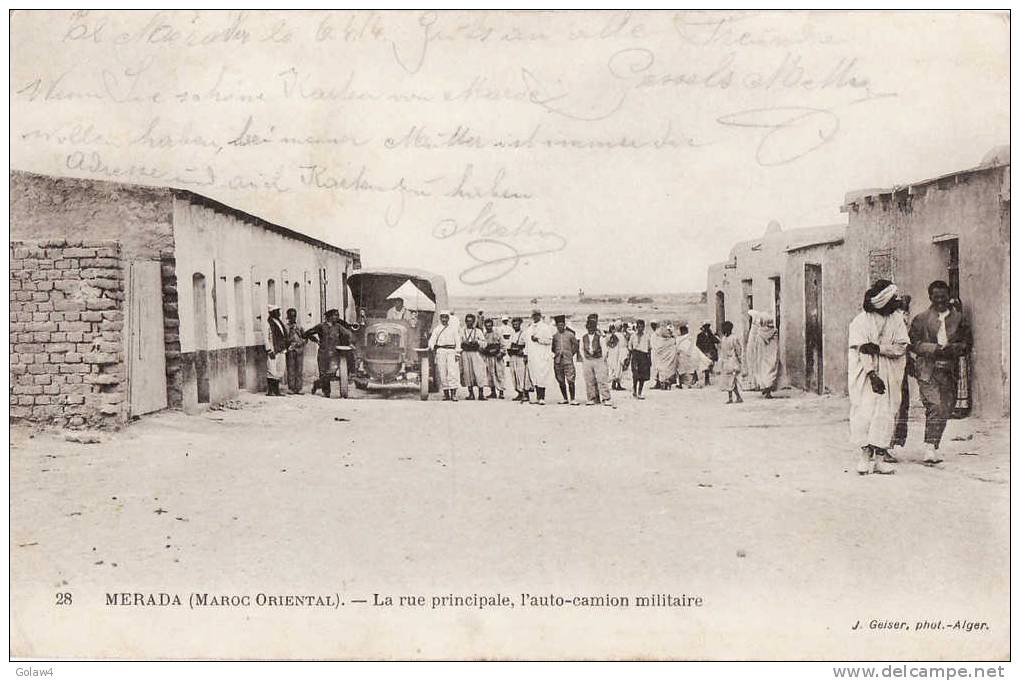 Merada le 6.4.14. Gruss an alle Freunde
Wenn Sie schöne Karten von Maroc
wollen haben, bei meiner Mutter ist immer die
Adresse und auch Karten zu haben
28 MERADA (MAROC ORIENTAL). — La rue principale, l'auto-camion militaire
J. Geiser, phot.-Alger.
Golaw4
www.delcampe.net